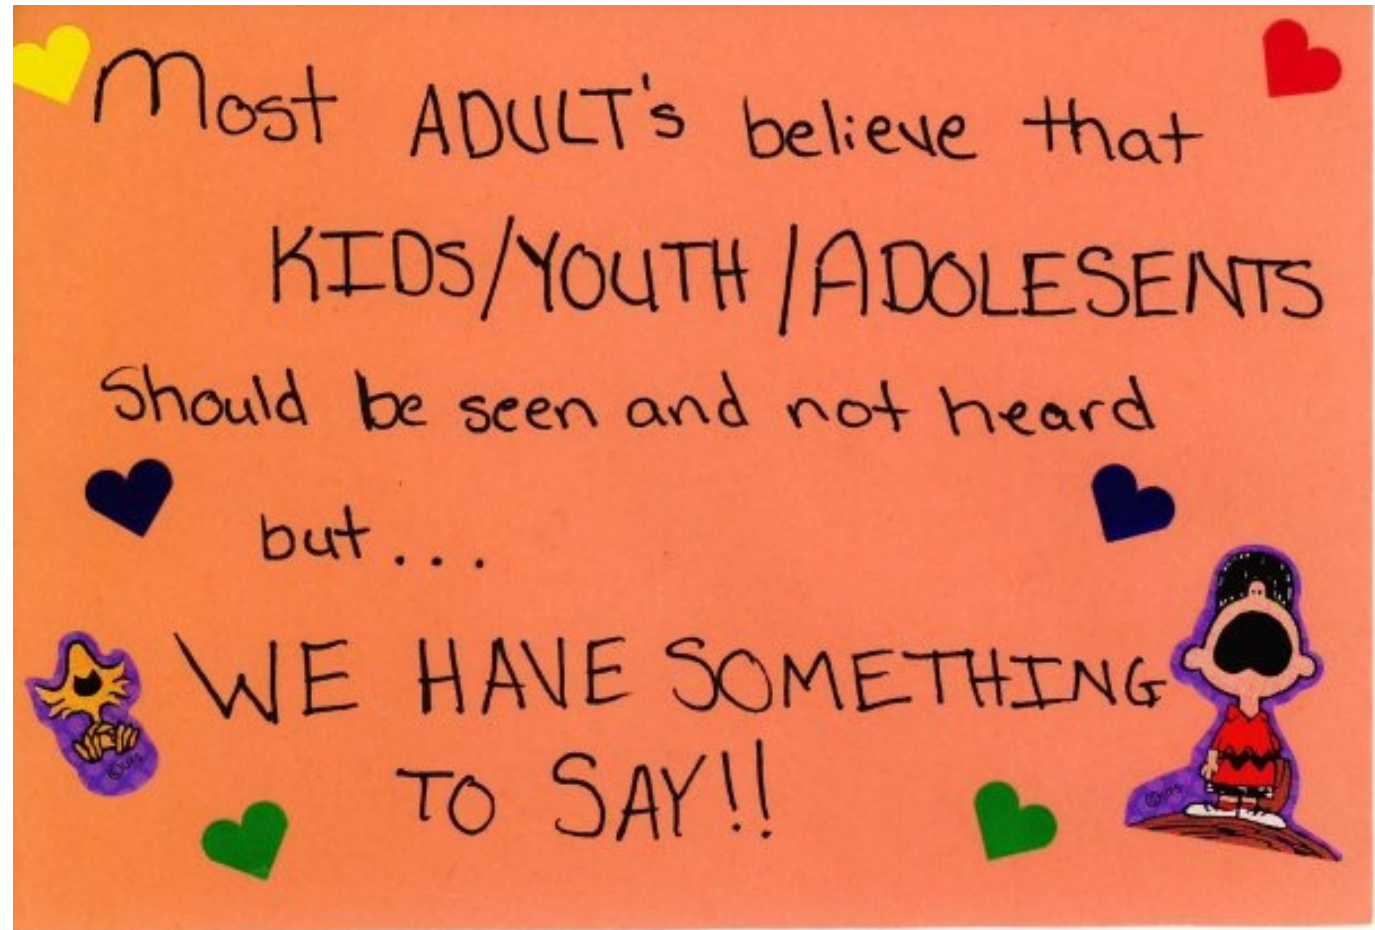 Most ADULT's believe that
KIDS/YOUTH/ADOLESENTS
Should be seen and not heard
but...
WE HAVE SOMETHING
TO SAY!!
©UFS
©UFS